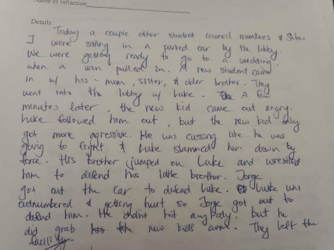 Name of Infraction
Details
Today a couple other student council members &
I were sitting in a parked car by the lobby.
We were getting ready to go to a wedding
when a van pulled in. A new student came
in w/ his mom, sister, & older brother. They
went into the lobby w/ Luke. A few
minutes later, the new kid came out angry.
Luke followed him out, but the new kid only
got more agressive. He was cussing like he was
going to fight & Luke slammed him down by
force. His brother jumped on Luke and wrestled
him to defend his little brother. Jorge
got out the car to defend Luke. Luke was
outnumbered & getting hurt so Jorge got out to
defend him. He didn't hit anybody, but he
did grab the new kids arms. They left the